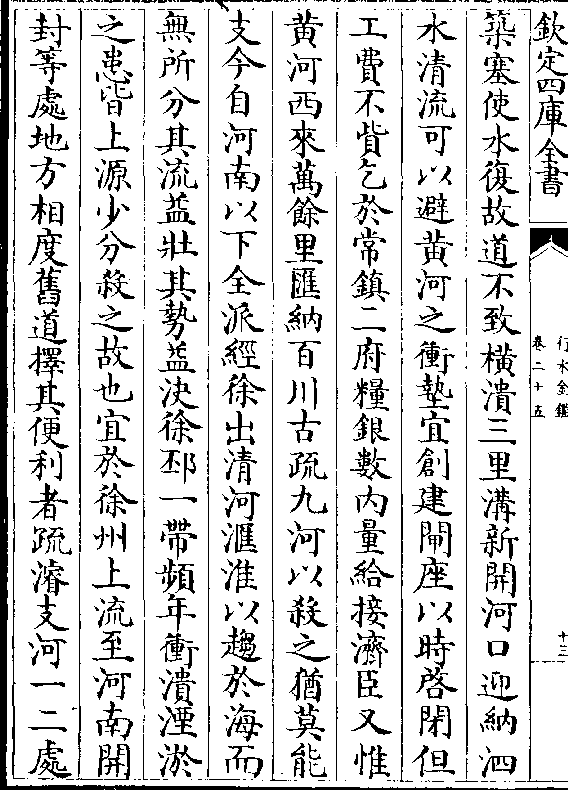 欽定四庫全書
行水金鑑
卷二十五
十三
築塞使水復故道不致橫潰三里溝新開河口迎納泗
水清流可以避黃河之衝墊宜創建閘座以時啓閉但
工費不貲乞於常鎮二府糧銀數內量給接濟臣又惟
黃河西來萬餘里匯納百川古疏九河以殺之猶莫能
支今自河南以下全派經徐出清河滙淮以趨於海而
無所分其流益壯其勢益決徐邳一帶頻年衝潰湮淤
之患皆上源少分殺之故也宜於徐州上流至河南開
封等處地方相度舊道擇其便利者疏濬支河一二處